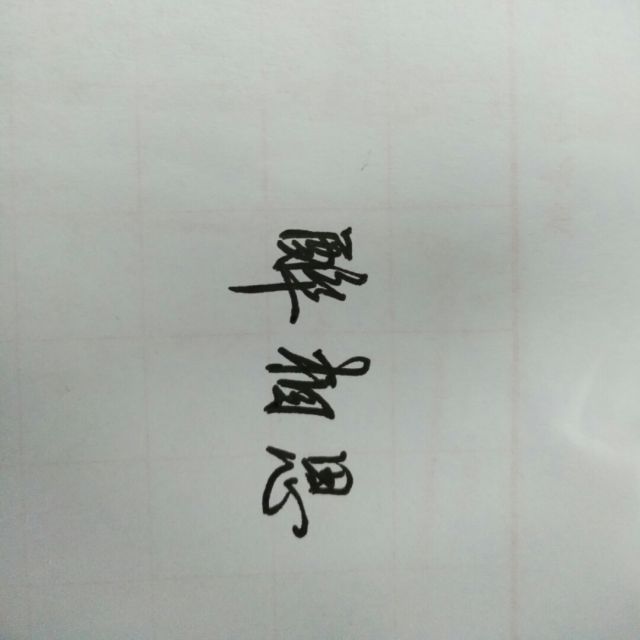 醉相思